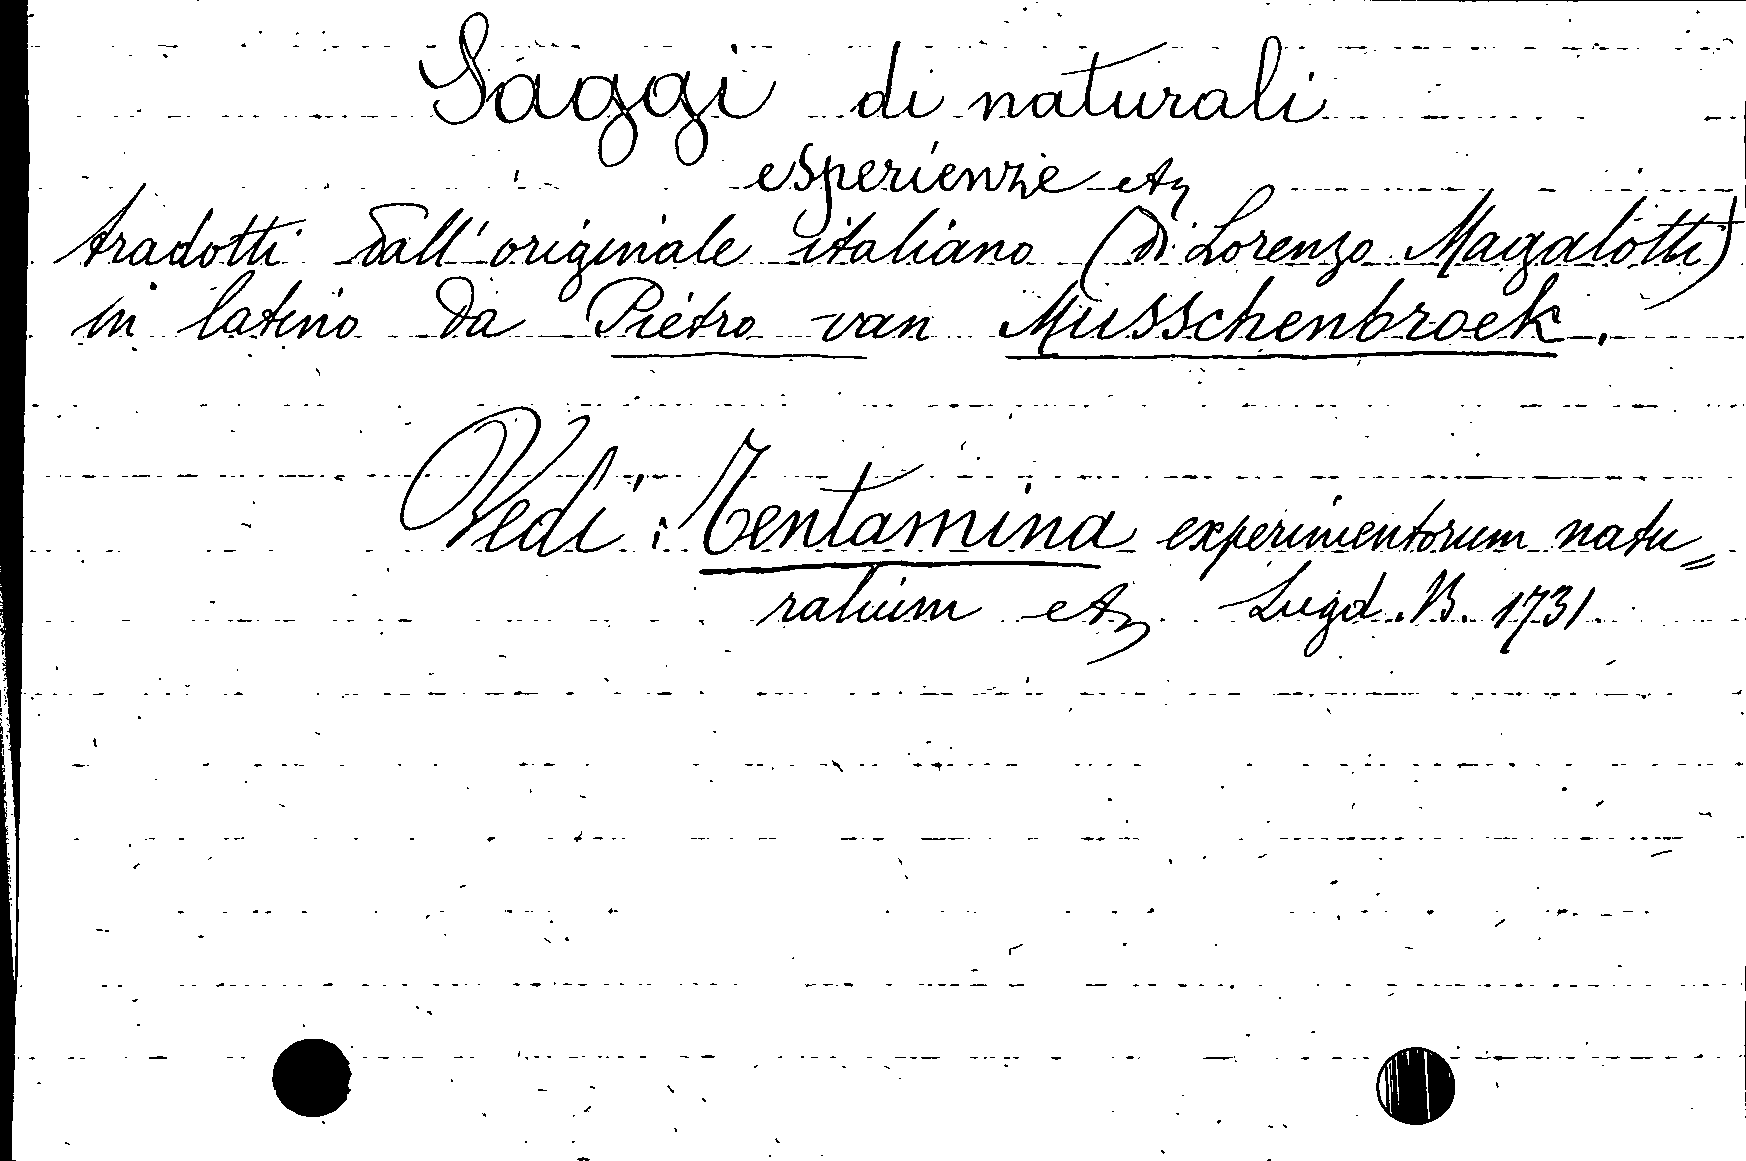 Saggi di naturali
esperienze etc
tradotti dall'originale italiano (di Lorenzo Magalotti)
in latino da Pietro van Musschenbroek.
Vedi: Tentamina experimentorum natu=
ralium etc Lugd. B. 1731.